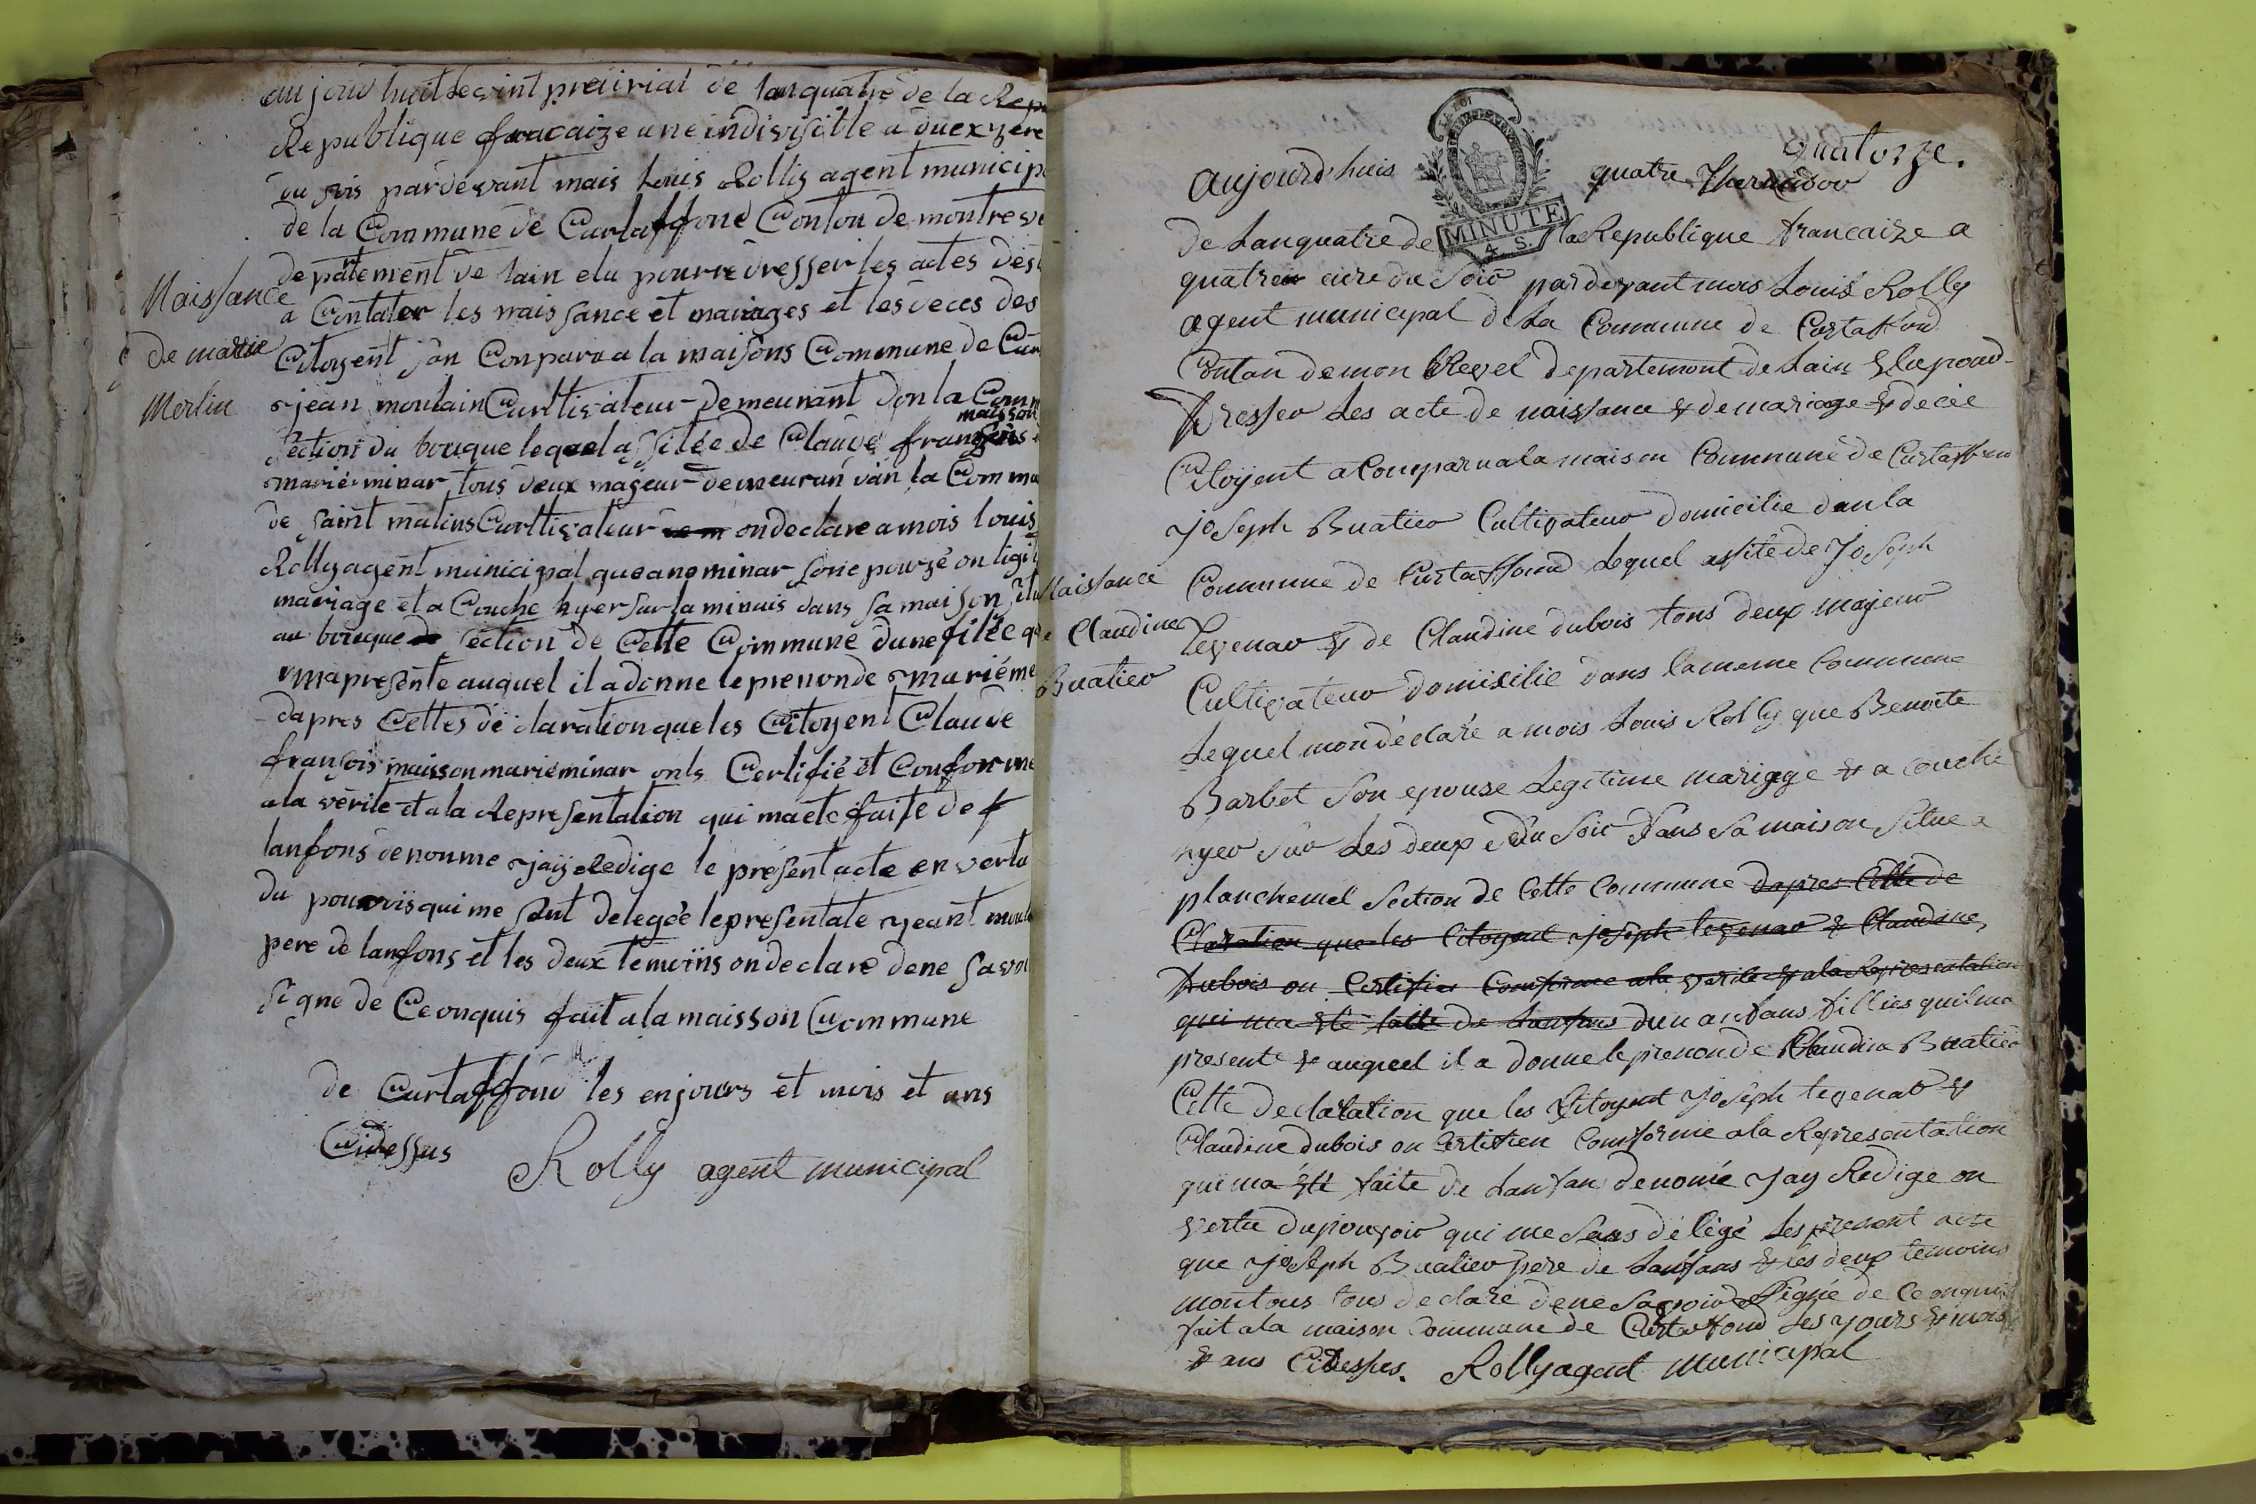 aujour huit le vint preirial de lan quatre de la Repu
Republique francaize une indivisitle a duex zere
du sois pardevant mais Louis Rolly agent municip
de la Commune de Curtaffond Conton de montrev
departement de lain elu pourre dresser les actes des
Naissance
a Contater les naissance et mariages et les deces des
de marie
Citoyent son Conparu a la maisons Commune de Cur
Merlin
jean moulain Curltivateur demeurant don la Com
maisson
section du bouque lequel assitée de Claude fransois
marie minar tous deux majeur demeuran dan la Commu
de saint malins Curltivateur on declare a mois louis
Rolly agent municipal que ane minar sone pouze on ligit
mariage et a Couche hyer sur la minuis dans sa maison situ
au bouque section de Cette Commune dune fille q
ma presente auquel il a donne le prenon de marie me
dapres Cettes declaration que les Citoyent Claude
fransois maisson marie minar onts Certifié et Conforme
a la vérite et a la Representation qui ma ete faite de f
lanfons denomme jaij Redige le présent acte en vertu
du pouvois qui me sont delegée le presentate jeant moul
pere de lanfons et les deux temoiins on declare dene savoi
signe de Ce onquis fait a la maisson Commune
de Curtaffond les en jours et mois et ans
Cidessus Rolly agent municipal
quatorze.
LA LOI
MINUTE
4. S.
aujourd'huis quatre Thermidor
de Lanquatre de la Republique francaize a
quatre eure du Soir pardevant mois Louis Rolly
agent municipal de La Commune de Curtaffond
Contan demon Revel departemont de Lain Elu pour
Dresser Les acte de naissance & de mariage & décée
Citoyent a Comparu a la maison Commune de Curtaffon
joseph Buatier Cultivateur domicilie dan la
Naissance
Commune de Curtaffond Lequel assite de joseph
e Claudine
tevenar & de Claudine dubois tous deux majeur
Buatier
Cultivateur domisilie dans la meme Commune
Lequel mon déclaré a mois Louis Rolly que Benoite
Barbet Son epouse Legitime mariage & a couché
hyer sur Les deux du Soir dans Sa maison Situe a
planchemel Section de Cette Commune dapres Cette de
Claration que les Citoyent joseph tevenar & Claudine
dubois on Certifier Comforme a la verite & a la Representation
qui ma ete faite de Lanfans dun anfans filles quil ma
presente & auquel il a donne le prenon de Claudine Buatier
Cette declaration que les Citoyent joseph tevenar &
Claudine dubois on Certifien Comforme a la Representation
qui ma ete faite de Lanfan denomé jay Redige on
vertu du pouvoir qui me Sons délégé Les present acte
que joseph Buatier pere de Lanfans & les deux temoins
montous tous declaré dene Savoir Signé de Ce onquis
fait a la maison Commune de Curtaffond Les jours & mois
& ans Cidessus. Rolly agent municipal